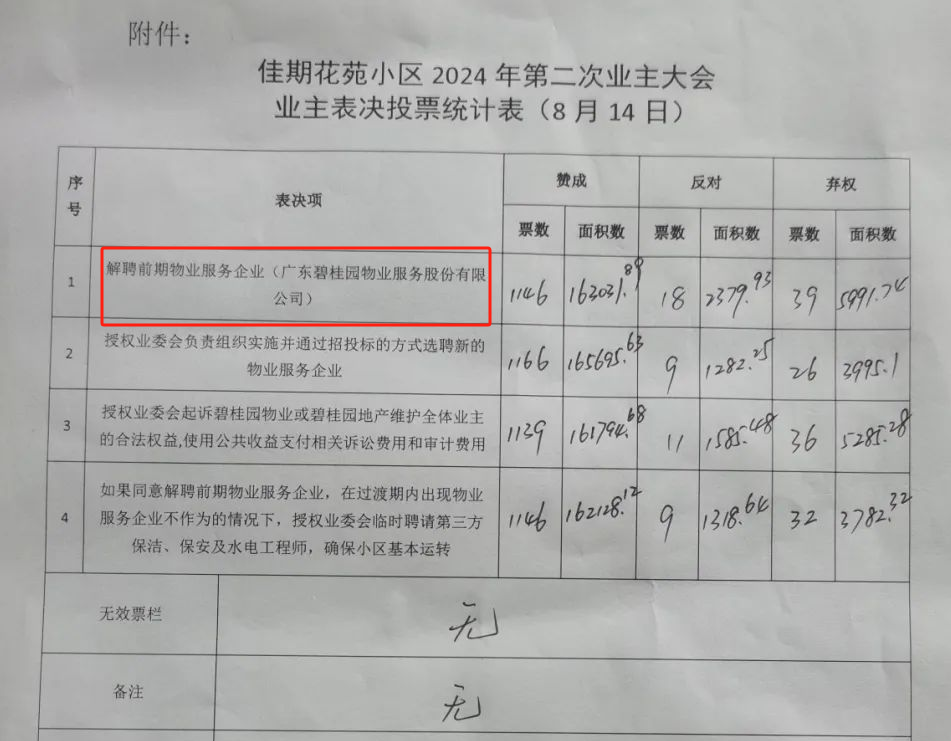 附件：
佳期花苑小区 2024 年第二次业主大会
业主表决投票统计表（8 月 14 日）
序号 表决项 赞成 反对 弃权
票数 面积数 票数 面积数 票数 面积数
1 解聘前期物业服务企业（广东碧桂园物业服务股份有限
公司） 1146 163031.89 18 2379.93 39 5991.74
2 授权业委会负责组织实施并通过招投标的方式选聘新的
物业服务企业 1166 165695.63 9 1282.25 26 3995.1
3 授权业委会起诉碧桂园物业或碧桂园地产维护全体业主
的合法权益,使用公共收益支付相关诉讼费用和审计费用 1139 161794.68 11 1585.48 36 5285.28
4 如果同意解聘前期物业服务企业，在过渡期内出现物业
服务企业不作为的情况下，授权业委会临时聘请第三方
保洁、保安及水电工程师，确保小区基本运转 1146 162128.12 9 1318.64 32 3782.32
无效票栏 无
备注 无